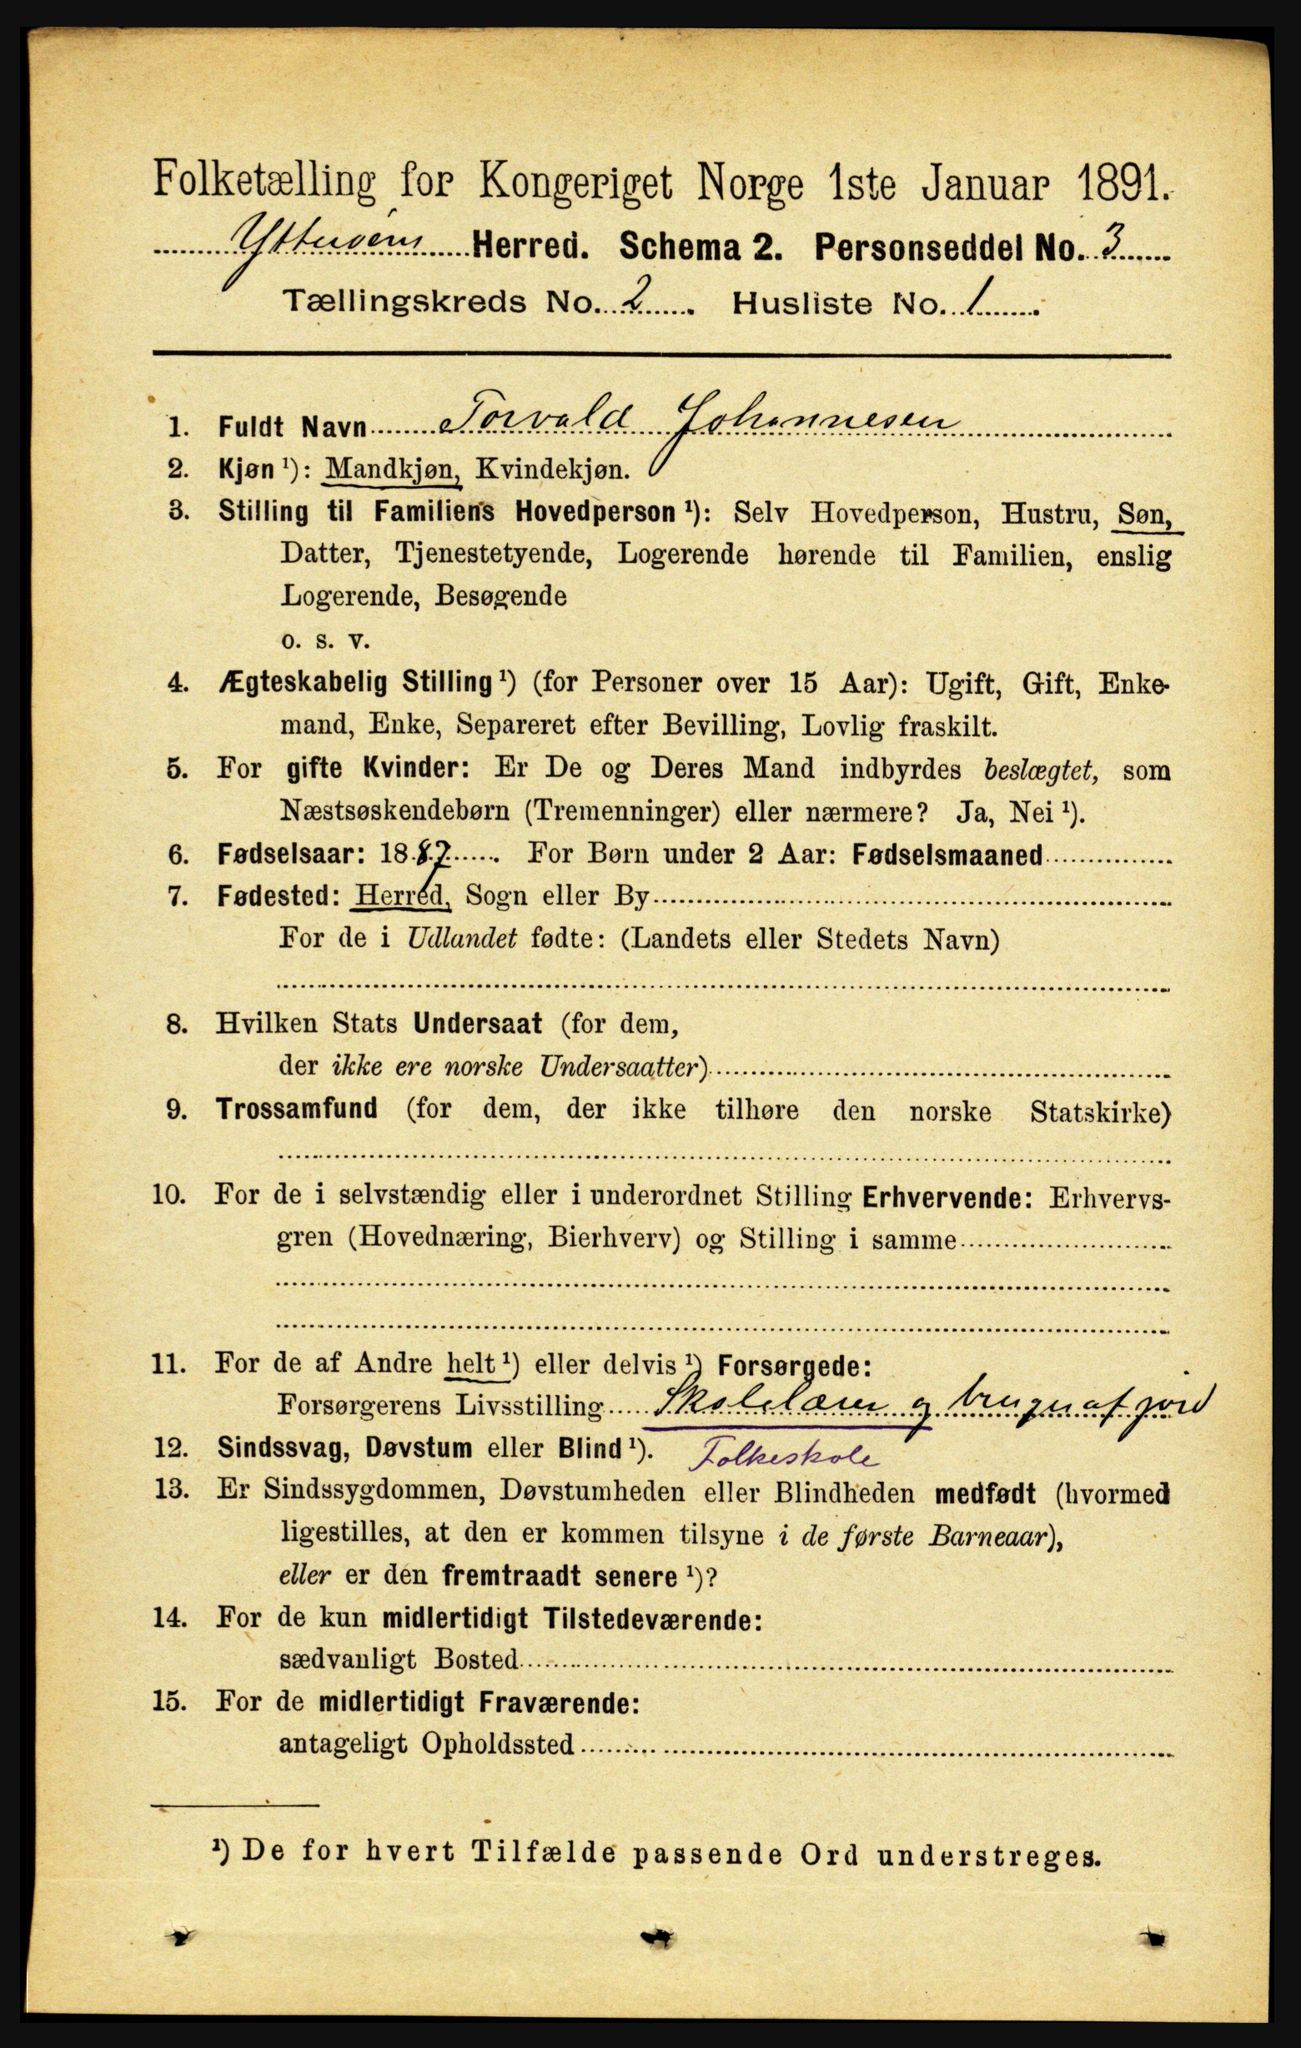 Folketælling for Kongeriget Norge 1ste Januar 1891.
Yttersøens Herred. Schema 2. Personseddel No. 3
Tællingskreds No. 2. Husliste No. 1.
1. Fuldt Navn Torvald Johannesen
2. Kjøn ¹): Mandkjøn, Kvindekjøn.
3. Stilling til Familiens Hovedperson ¹): Selv Hovedperson, Hustru, Søn,
Datter, Tjenestetyende, Logerende hørende til Familien, enslig
Logerende, Besøgende
o. s. v.
4. Ægteskabelig Stilling ¹) (for Personer over 15 Aar): Ugift, Gift, Enke-
mand, Enke, Separeret efter Bevilling, Lovlig fraskilt.
5. For gifte Kvinder: Er De og Deres Mand indbyrdes beslægtet, som
Næstsøskendebørn (Tremenninger) eller nærmere? Ja, Nei ¹).
6. Fødselsaar: 1887. For Børn under 2 Aar: Fødselsmaaned
7. Fødested: Herred, Sogn eller By
For de i Udlandet fødte: (Landets eller Stedets Navn)
8. Hvilken Stats Undersaat (for dem,
der ikke ere norske Undersaatter)
9. Trossamfund (for dem, der ikke tilhøre den norske Statskirke)
10. For de i selvstændig eller i underordnet Stilling Erhvervende: Erhvervs-
gren (Hovednæring, Bierhverv) og Stilling i samme
11. For de af Andre helt ¹) eller delvis ¹) Forsørgede:
Forsørgerens Livsstilling Skolelærer og bruger af jord
12. Sindssvag, Døvstum eller Blind ¹). Folkeskole
13. Er Sindssygdommen, Døvstumheden eller Blindheden medfødt (hvormed
ligestilles, at den er kommen tilsyne i de første Barneaar),
eller er den fremtraadt senere ¹)?
14. For de kun midlertidigt Tilstedeværende:
sædvanligt Bosted
15. For de midlertidigt Fraværende:
antageligt Opholdssted
¹) De for hvert Tilfælde passende Ord understreges.